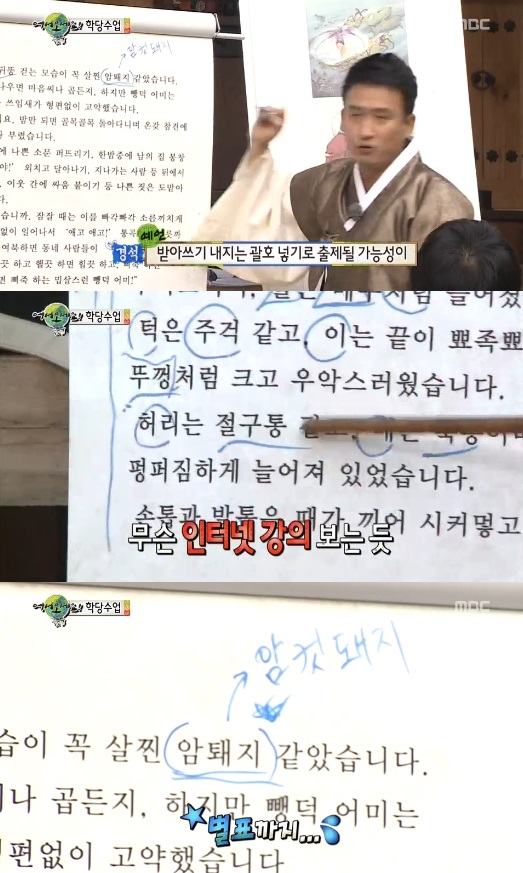 학당수업
MBC
암컷돼지
뒤뚱 걷는 모습이 꼭 살찐 암퇘지 같았습니다.
나우면 마음씨나 곱든지, 하지만 뺑덕 어미는
쓰임새가 헤펐없이 고약했습니다.
요, 밤만 되면 골목골목 돌아다니며 온갖 참견에
부렸습니다.
에 나쁜 소문 퍼뜨리기, 한밤중에 남의 집 봉창
야!’ 외치고 달아나기, 지나가는 사람 등 뒤에서
이웃 간에 싸움 붙이기 등 나쁜 짓은 도맡아
습니까, 잠잘 때는 이를 빠각빠각 소름끼치게
없이 일어나서 ‘애고 애고!’ 통곡
여북하면 동네 사람들이
끗 하고 헬끗 하면 힘끗 하고,
면 삐죽 하는 밉살스런 뺑덕 어미!”
예언
경석 받아쓰기 내지는 괄호 넣기로 출제될 가능성이
학당수업
턱은 주걱 같고, 이는 끝이 뾰족뾰
뚜껑처럼 크고 우악스러웠습니다.
허리는 절구통
펑퍼짐하게 늘어져 있었습니다.
손톱과 발톱은 때가 끼어 시커멓고
무슨 인터넷 강의 보는 듯
학당수업
MBC
암컷돼지
습이 꼭 살찐 암퇘지 같았습니다.
나 곱든지, 하지만 뺑덕 어미는
별표까지...
편없이 고약했습니다